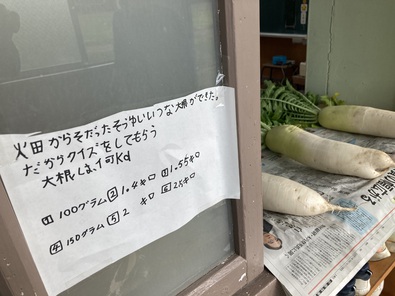 火田からそだったそうゆいいつな大根ができた。
だからクイズをしてもらう
大根は、何Kg
① 100グラム ② 1.4キロ ③ 1.55キロ
④ 150グラム ⑤ 2キロ ⑥ 2.8キロ